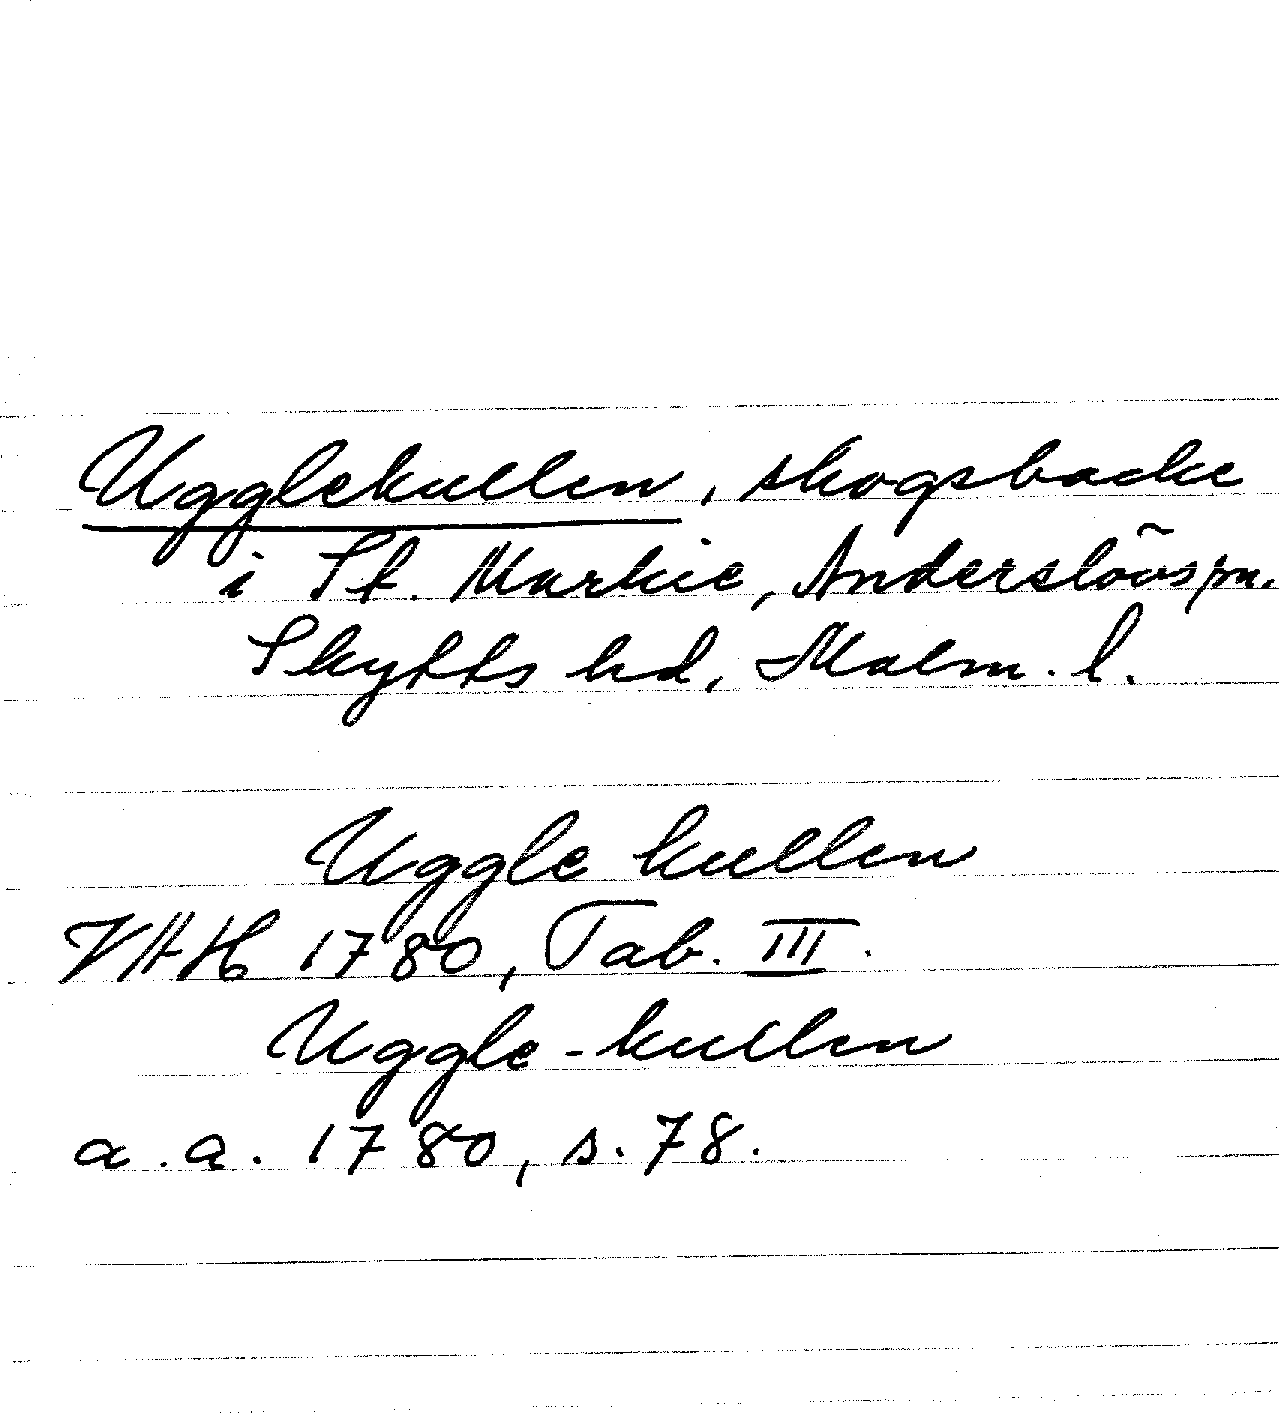 Ugglekullen, skogsbacke
i St. Markie, Anderslövs sn.
Skytts hd, Malm. l.
Uggle kullen
VAH 1780, Tab. III.
Uggle-kullen
a.a. 1780, s. 78.